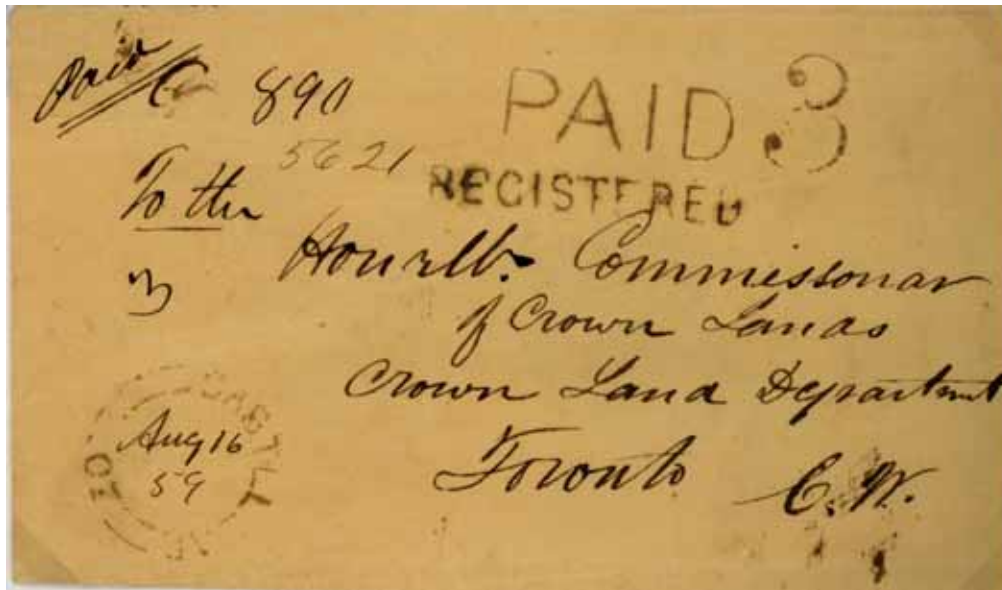 Paid
890
PAID 3
5621
REGISTERED
To the
Honrlb. Commissonar
3
of Crown Lands
Crown Land Department
Aug 16
59
Toronto C. W.